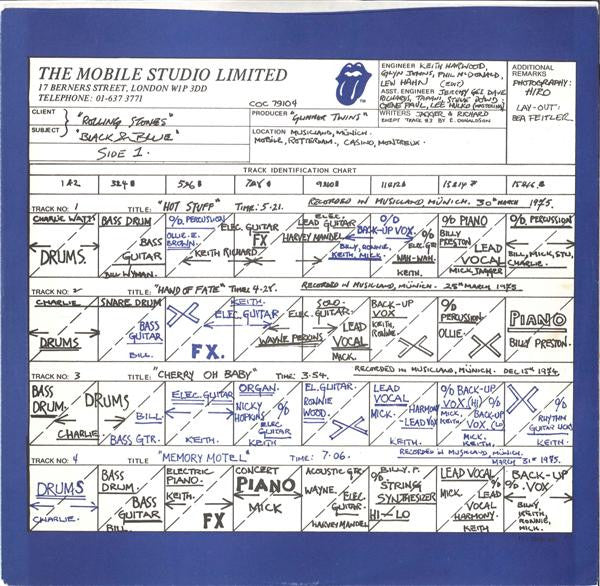 THE MOBILE STUDIO LIMITED
17 BERNERS STREET, LONDON W1P 3DD
TELEPHONE: 01-637 3771
COC 79104
CLIENT "ROLLING STONES"
SUBJECT "BLACK & BLUE"
SIDE 1.
PRODUCER "GLIMMER TWINS"
LOCATION MUSICLAND, MÜNICH.
MOBILE, ROTTERDAM., CASINO, MONTREUX.
ENGINEER KEITH HARWOOD,
GLYN JOHNS, PHIL McDONALD,
LEW HAHN (ENG)
ASST. ENGINEER JEREMY GEE DAVE
RICHARDS, TAPANI, STEVE DOWD,
GENE PAUL, LEE HULKO (MASTERING)
WRITERS JAGGER & RICHARD
EXCEPT TRACK #3 BY E. DONALDSON
ADDITIONAL REMARKS
PHOTOGRAPHY:
HIRO
LAY-OUT:
BEA FEITLER.
TRACK IDENTIFICATION CHART
1&2 3&4 5&6 7&8 9&10 11&12 13&14 15&16
TRACK NO. 1 TITLE: "HOT STUFF" TIME: 5.21. RECORDED IN MUSICLAND, MÜNICH. 30TH MARCH 1975.
CHARLIE WATTS
DRUMS.
BASS DRUM
BASS GUITAR
BILL WYMAN.
% PERCUSSION
OLLIE E. BROWN.
ELEC. GUITAR
KEITH RICHARD
FX
ELEC. LEAD GUITAR
HARVEY MANDEL
% BACK-UP VOX.
BILLY, RONNIE, KEITH, MICK.
% ELEC. GTR
WAH-WAH.
KEITH.
% PIANO
BILLY PRESTON
LEAD VOCAL
MICK JAGGER
% PERCUSSION
BILL, MICK, STU, CHARLIE.
TRACK NO. 2 TITLE: "HAND OF FATE" TIME: 4.28. RECORDED IN MUSICLAND, MÜNICH. 25TH MARCH 1975
CHARLIE
DRUMS
SNARE DRUM
BASS GUITAR
BILL.
KEITH.
ELEC. GUITAR
FX.
SOLO.
ELEC. GUITAR.
WAYNE PERKINS
LEAD VOCAL
MICK.
BACK-UP VOX
KEITH, RONNIE
% PERCUSSION
OLLIE.
PIANO
BILLY PRESTON.
TRACK NO. 3 TITLE: "CHERRY OH BABY" TIME: 3.54. RECORDED IN MUSICLAND, MÜNICH. DEC 15TH 1974.
BASS DRUM.
DRUMS
CHARLIE
BILL.
BASS GTR.
ELEC. GUITAR
KEITH.
ORGAN.
NICKY HOPKINS
% ELEC GUITAR
KEITH
EL. GUITAR.
RONNIE WOOD.
LEAD VOCAL
MICK.
HARMONY LEAD VOX
KEITH.
% BACK-UP VOX (HI)
MICK. KEITH.
% BACK-UP VOX. (LO)
MICK. KEITH.
% RHYTHM GUITAR
KEITH.
TRACK NO. 4 TITLE: "MEMORY MOTEL" TIME: 7.06. RECORDED IN MUSICLAND, MÜNICH.
MARCH 31ST 1975.
DRUMS
CHARLIE.
BASS DRUM.
BASS GUITAR
BILL.
ELECTRIC PIANO.
KEITH.
FX
CONCERT
PIANO
MICK
ACOUSTIC GTR
WAYNE.
ELEC. GUITAR.
HARVEY MANDEL
% BILLY. P.
STRING SYNTHESIZER
HI-LO
LEAD VOCAL
MICK.
LEAD VOCAL HARMONY.
KEITH
% BACK-UP
% VOX.
BILLY, KEITH, RONNIE, MICK.